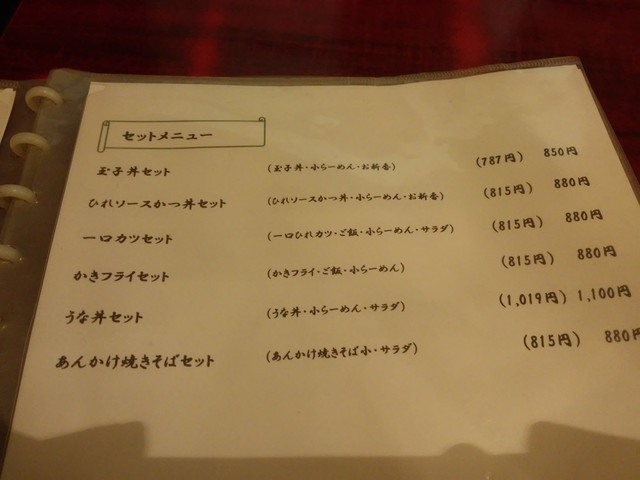 セットメニュー
玉子丼セット (玉子丼・小らーめん・お新香) (787円) 850円
ひれソースかつ丼セット (ひれソースかつ丼・小らーめん・お新香) (815円) 880円
一口カツセット (一口ひれカツ・ご飯・小らーめん・サラダ) (815円) 880円
かきフライセット (かきフライ・ご飯・小らーめん) (815円) 880円
うな丼セット (うな丼・小らーめん・サラダ) (1,019円) 1,100円
あんかけ焼きそばセット (あんかけ焼きそば小・サラダ) (815円) 880円